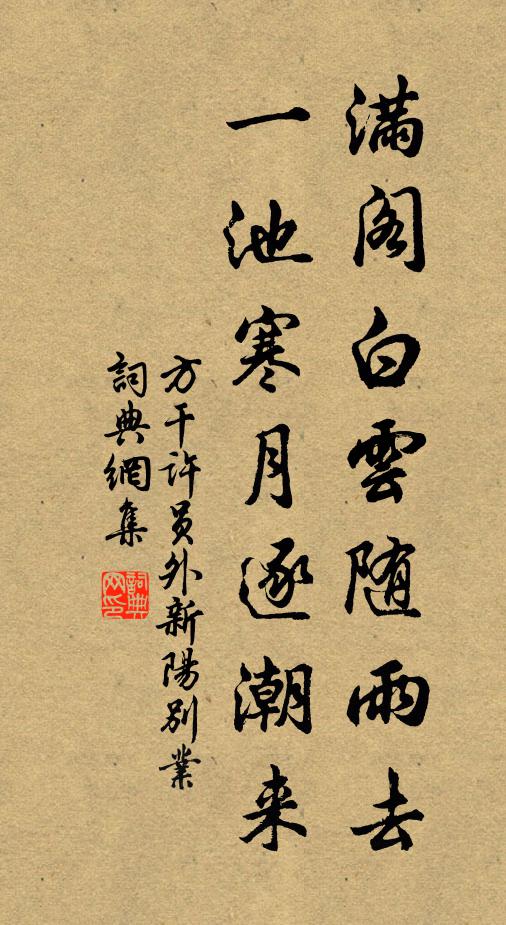 滿阁白雲随雨去
一池寒月逐潮来
方干许员外新陽别業
詞典網集
詞典网印